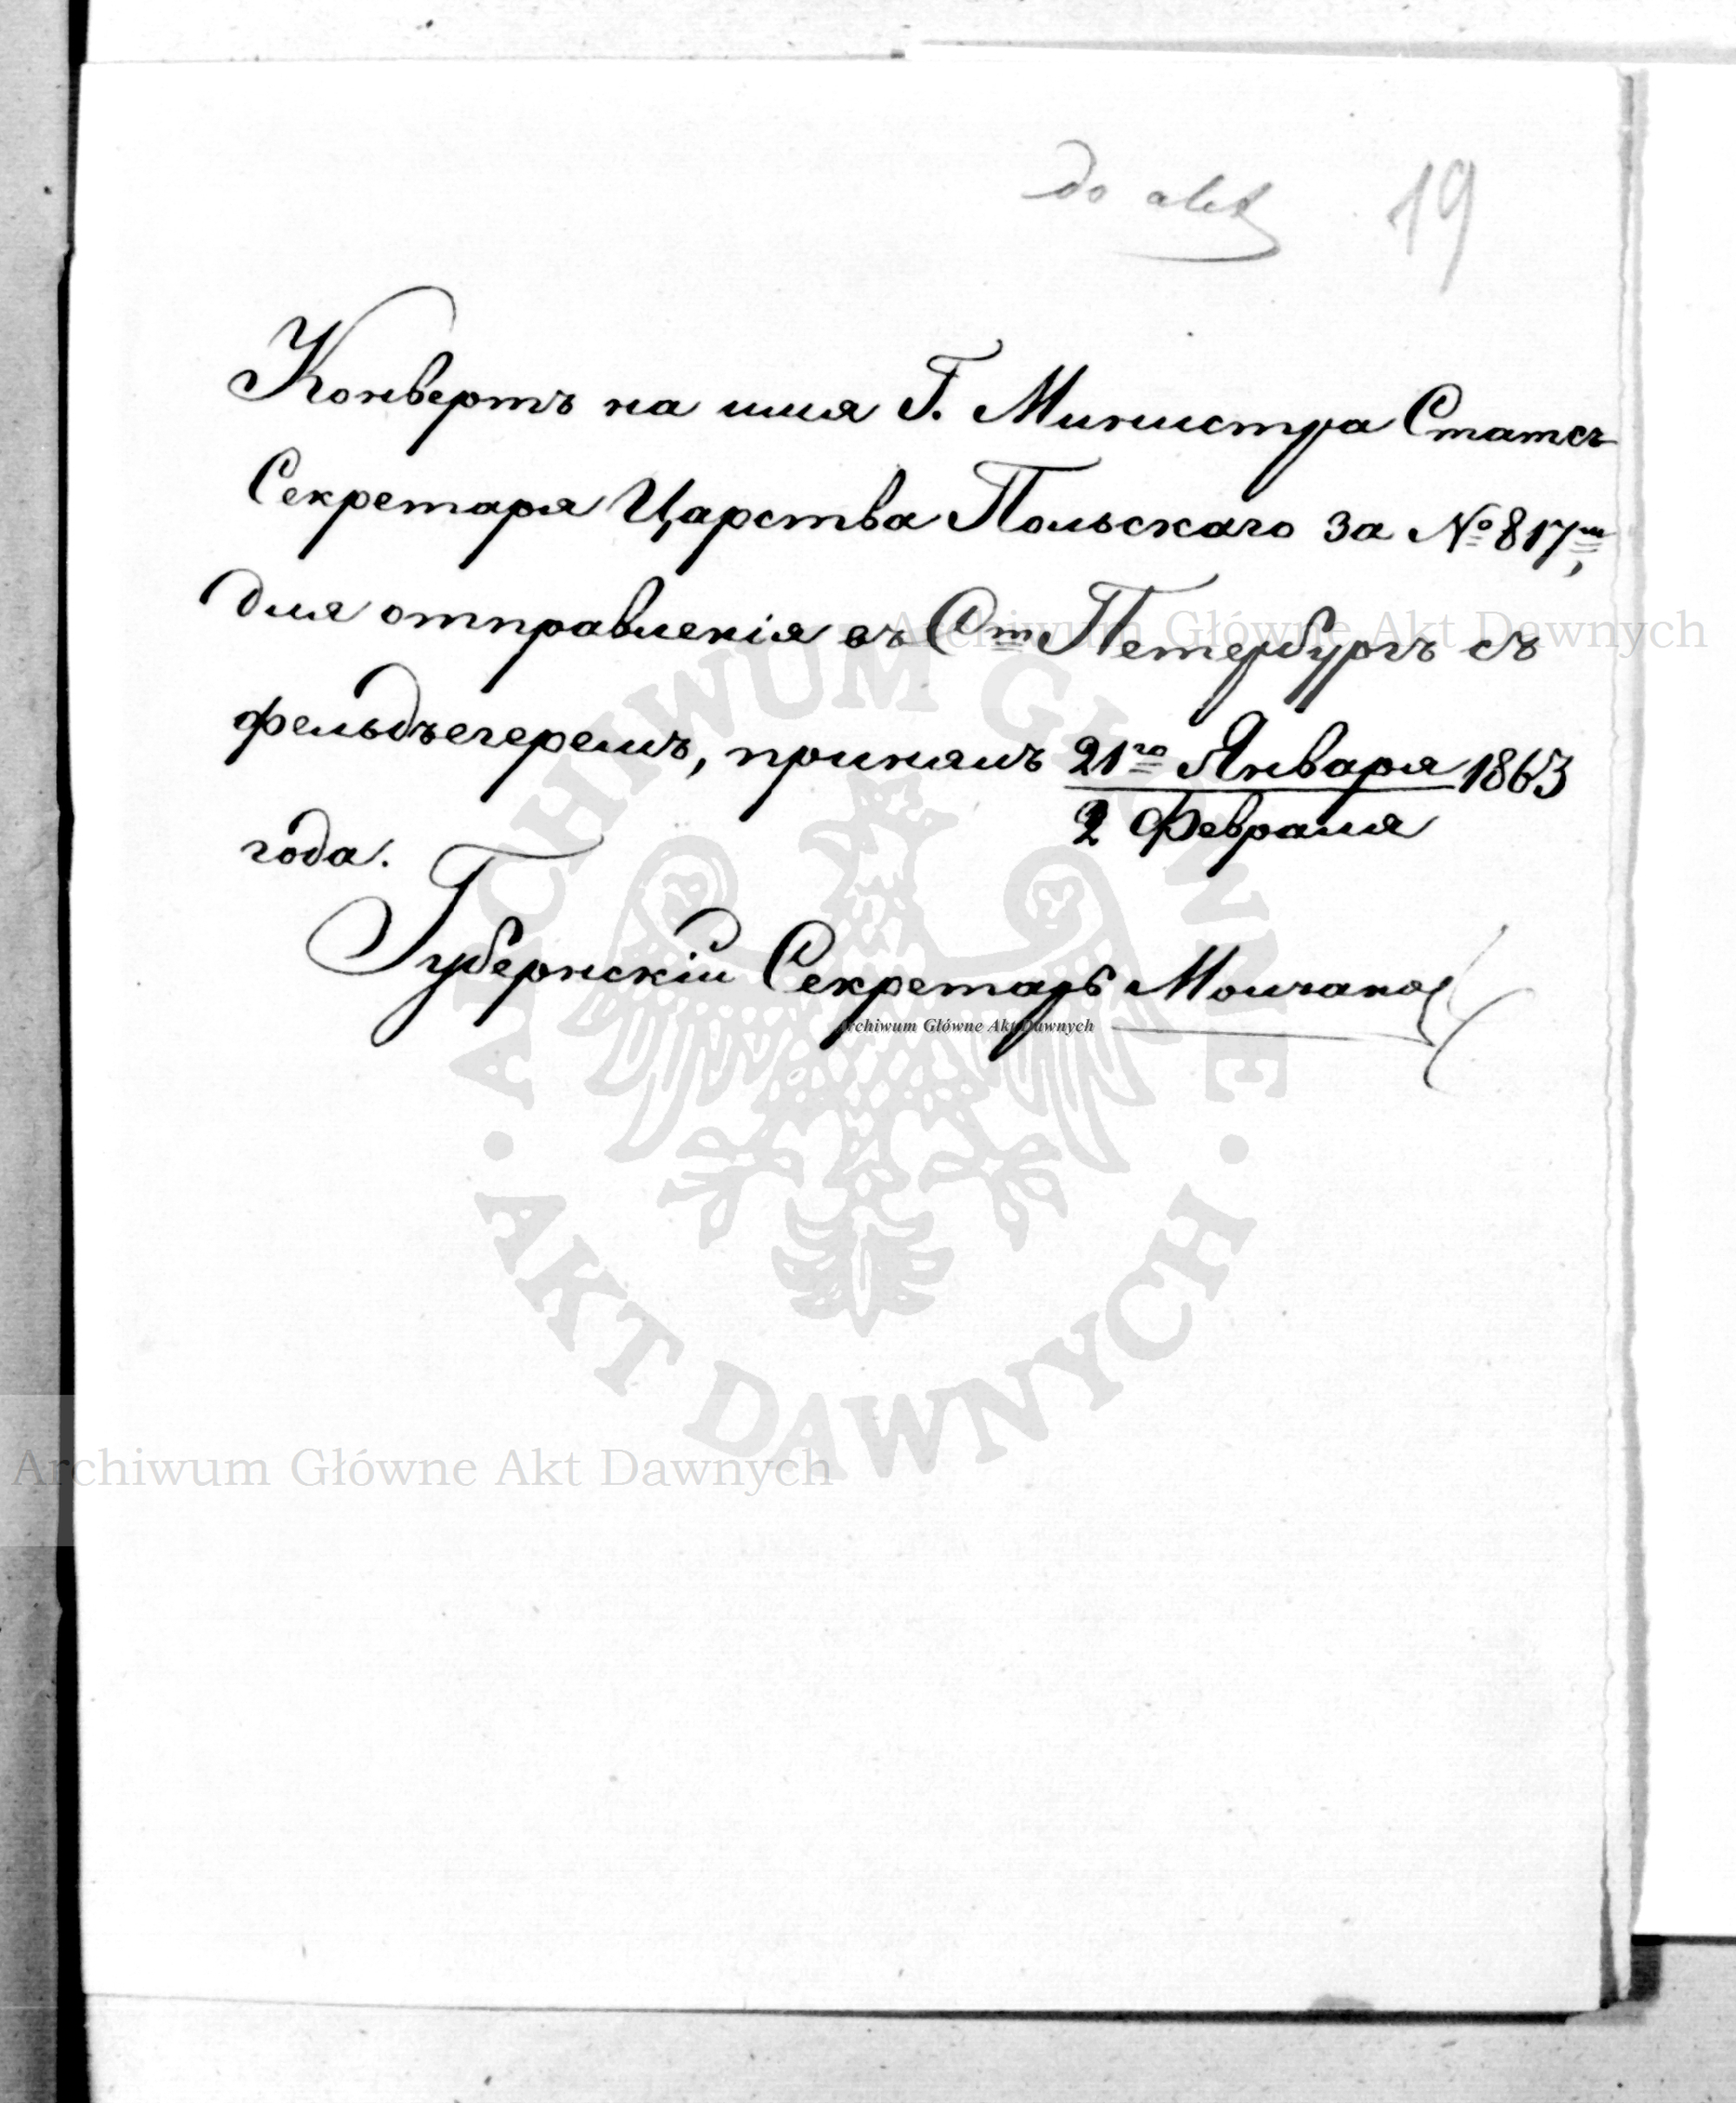 do akt 19
Конвертъ на имя Г. Министра Статсъ
Секретаря Царства Польскаго за № 817ш,
для отправленія въ Ст Петербургъ съ
фельдъегеремъ, принялъ 21го Января 1863
2 Февраля
года.
Губернскій Секретарь Молчанов
Archiwum Główne Akt Dawnych
Archiwum Główne Akt Dawnych
ARCHIWUM GŁÓWNE
AKT DAWNYCH
Archiwum Główne Akt Dawnych